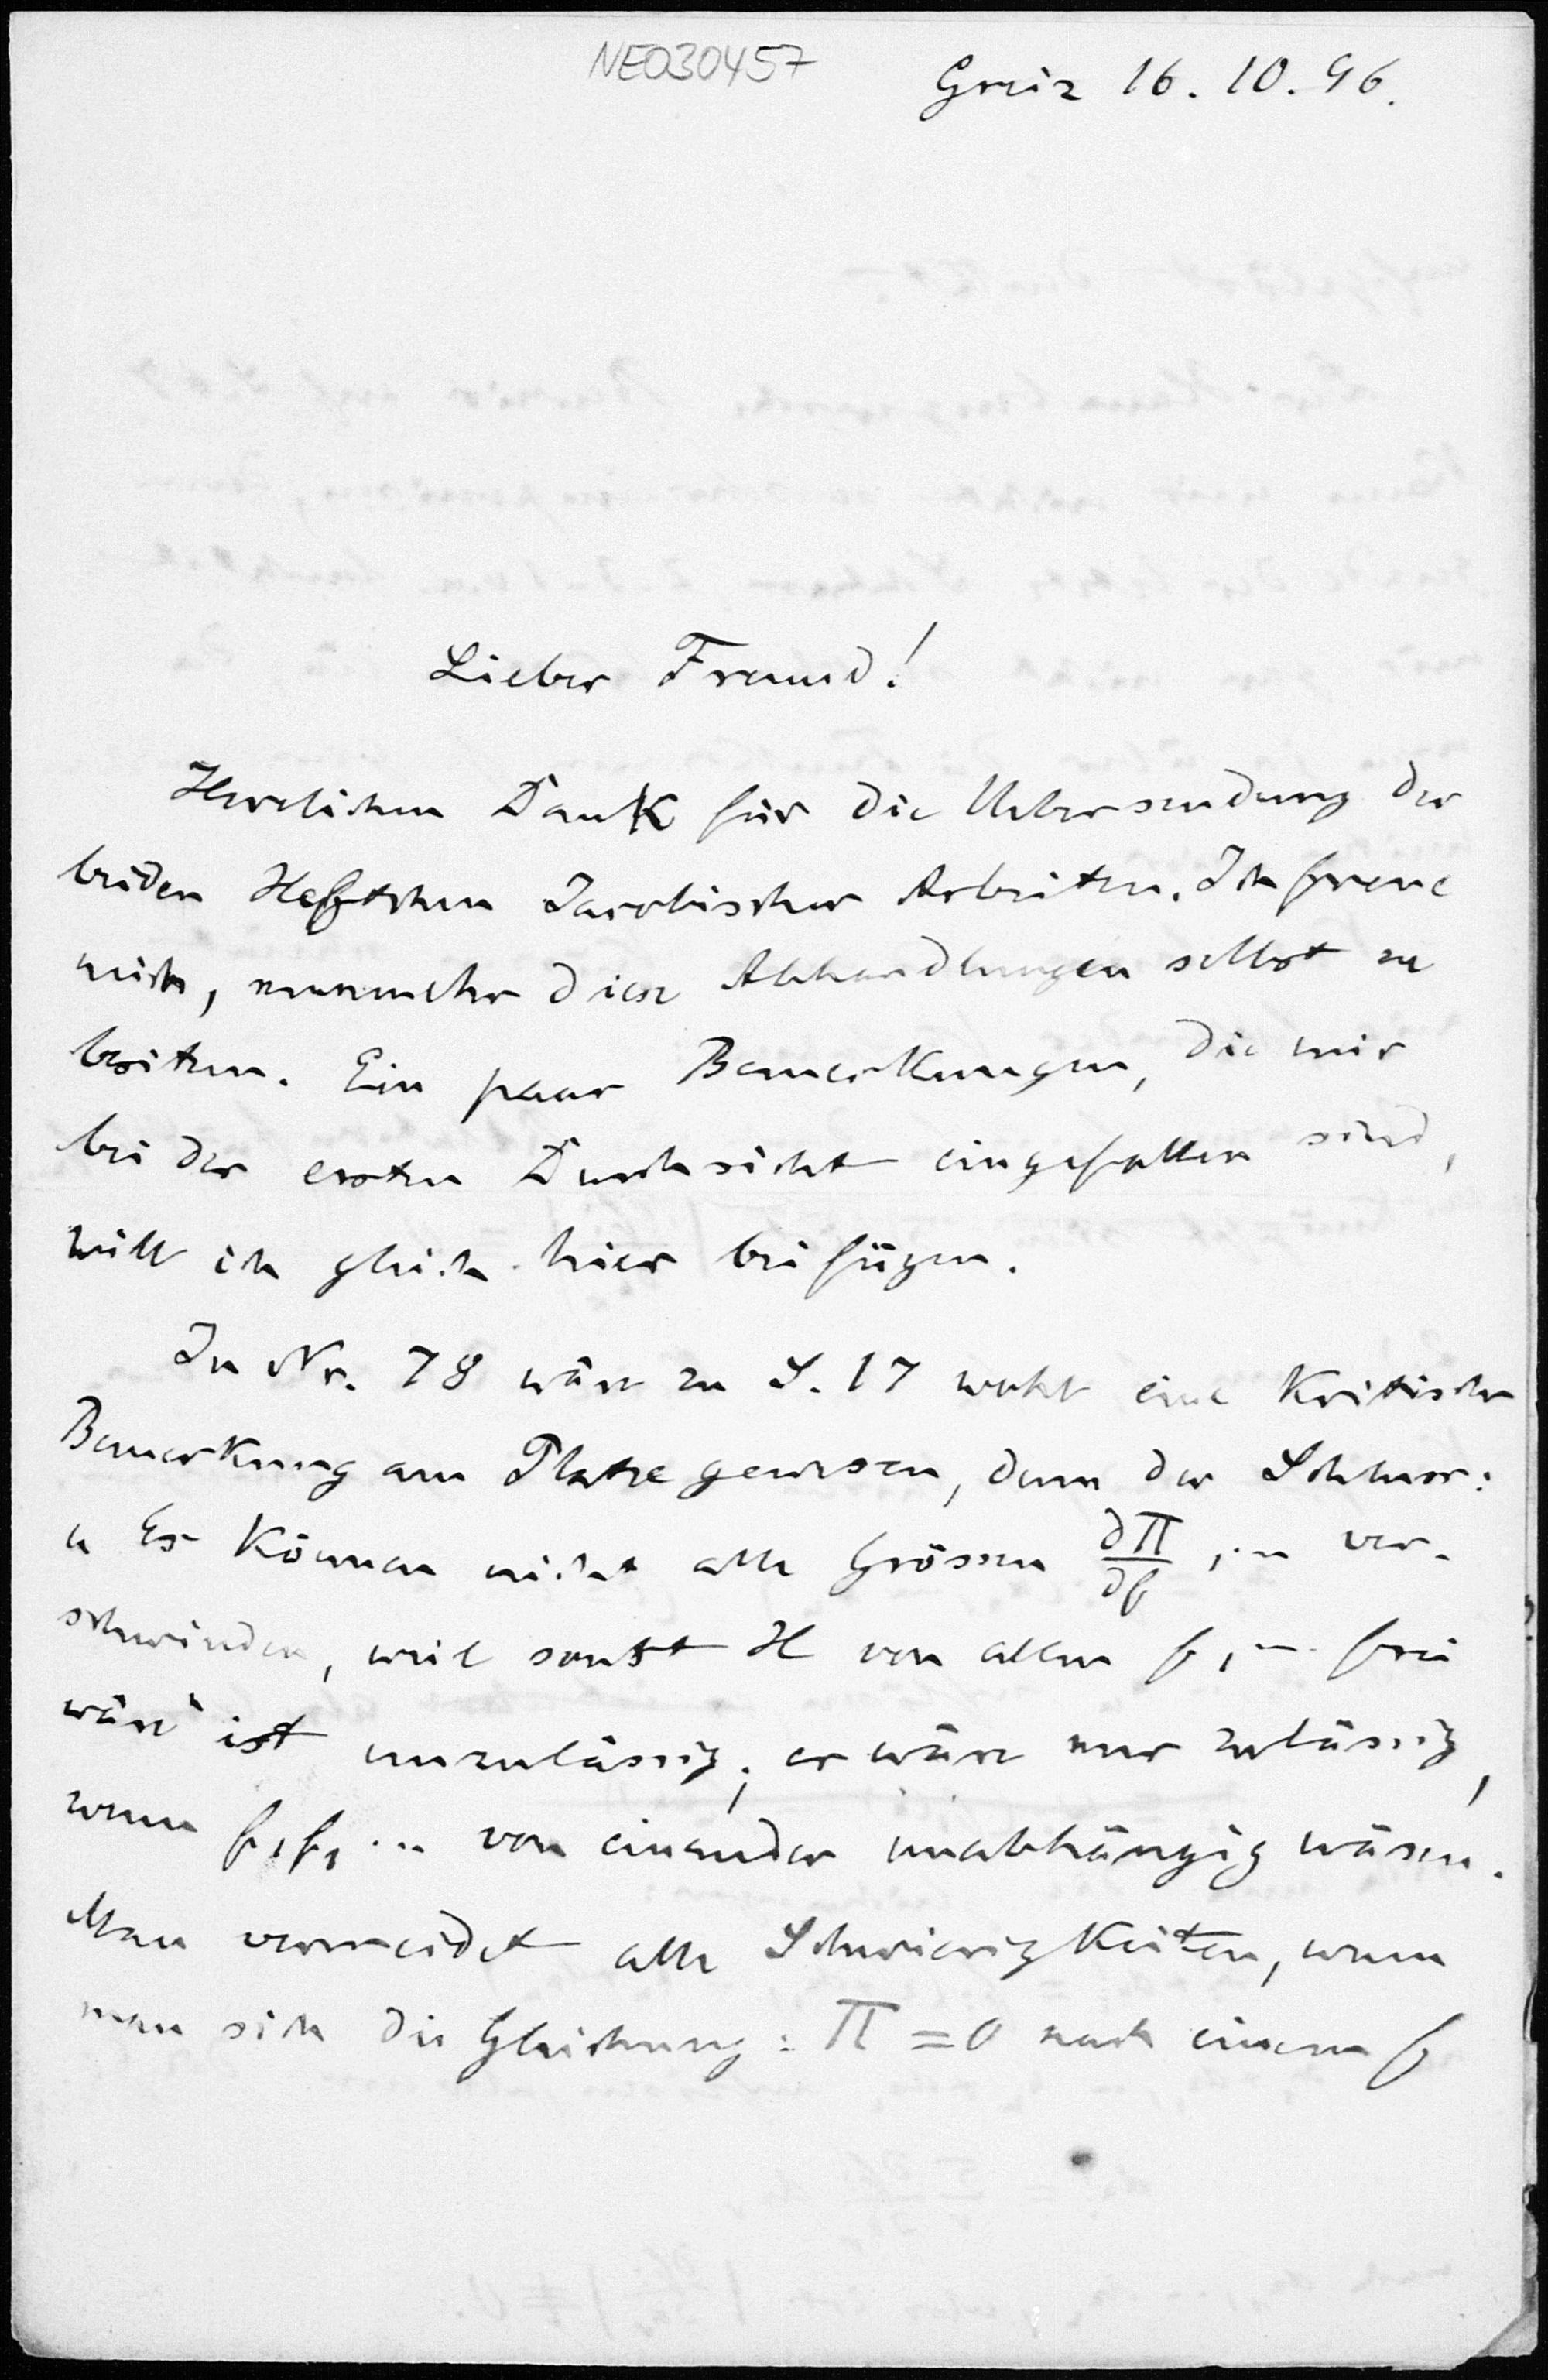 NE030457
Greiz 16. 10. 96.
Lieber Freund!
Herzlichen Dank für die Uebersendung der
beiden Heftchen Jacobischer Arbeiten. Ich freue
mich, nunmehr diese Abhandlungen selbst zu
besitzen. Ein paar Bemerkungen, die mir
bei der ersten Durchsicht eingefallen sind,
will ich gleich hier beifügen.
In Nr. 78 wäre zu S. 17 wohl eine kritische
Bemerkung am Platze gewesen, denn der Schluss:
„Es können nicht alle Grössen ∂Π/∂f, ... ver-
schwinden, weil sonst H von allen f, ... frei
wäre“ ist unzulässig; er wäre nur zulässig,
wenn f, f₁ ... von einander unabhängig wären.
Man vermeidet alle Schwierigkeiten, wenn
man sich die Gleichung: Π = 0 nach einem f